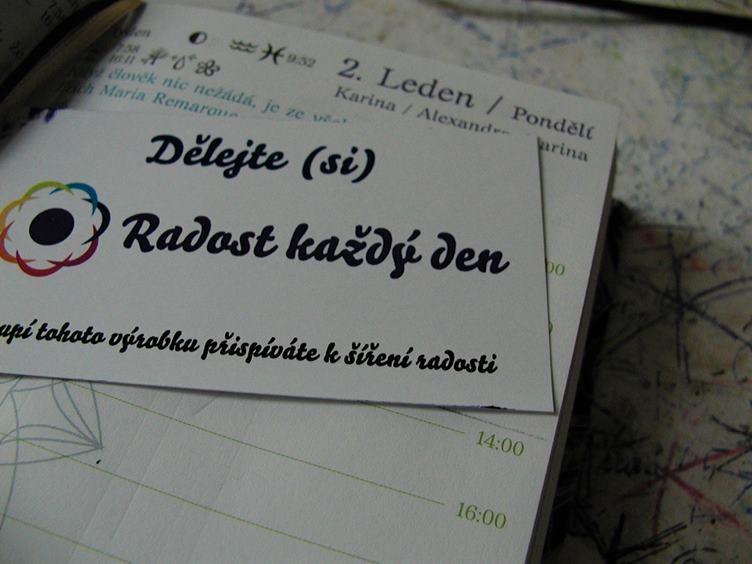 9:52
16:11
2. Leden / Pondělí
Karina / Alexandra
arina
člověk nic nežádá, je ze
Maria Remarque
Dělejte (si)
Radost každý den
upí tohoto výrobku přispíváte k šíření radosti
00
14:00
16:00